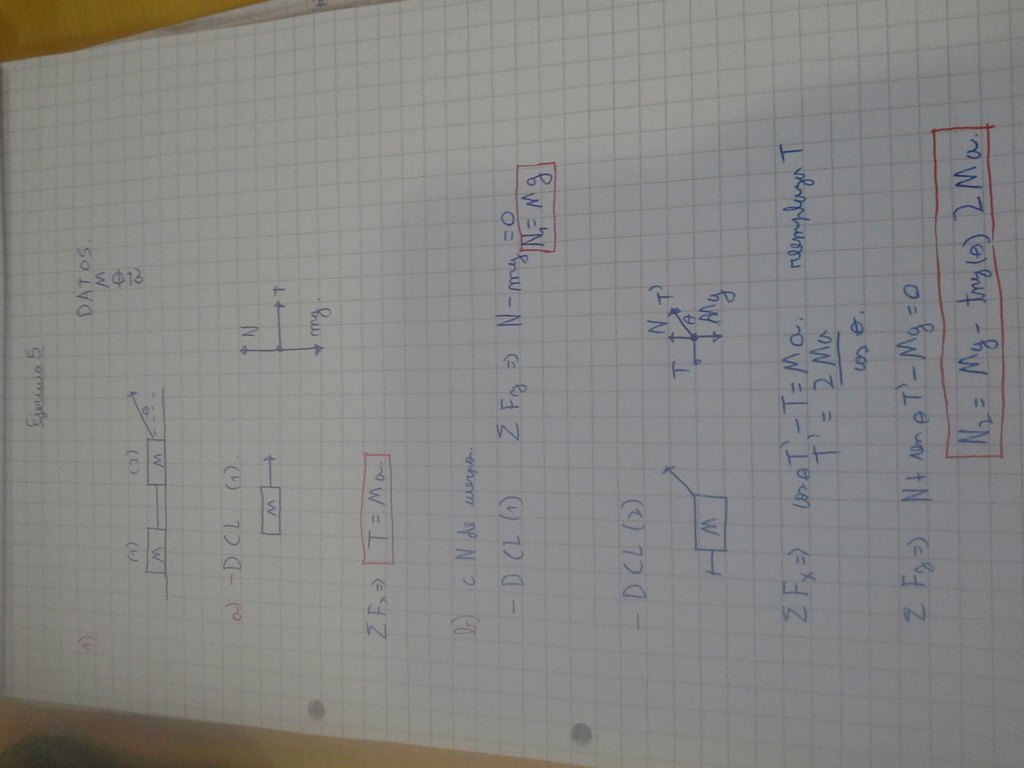 Ejercicio 5
1)
DATOS.
M
θ
a
(1) (2)
M M θ
a) - DCL (1).
M
N
T
mg.
ΣFx => T = Ma.
b) c N de
- DCL (1) ΣFy => N - mg = 0
N1 = Mg
- DCL (2)
M
T N T'
θ
Mg
ΣFx => cosθT' - T = Ma. reemplaza T
T' = 2Ma
cos θ.
ΣFy => N + senθT' - Mg = 0
N2 = Mg - tng(θ) 2Ma.